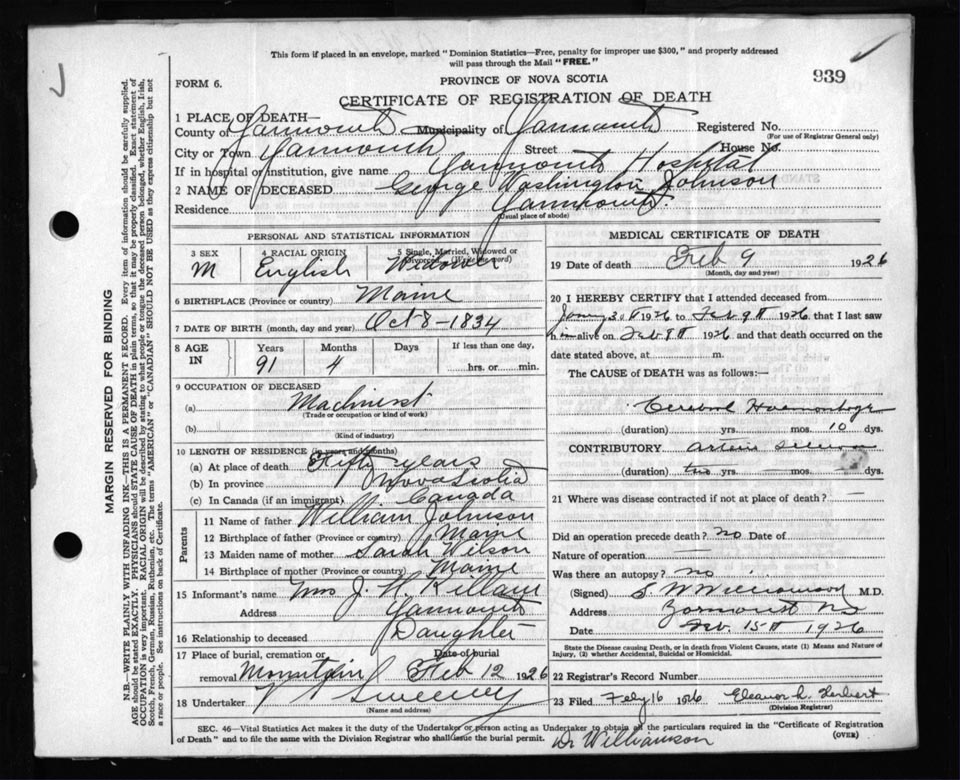 This form if placed in an envelope, marked "Dominion Statistics—Free, penalty for improper use $300," and properly addressed
will pass through the Mail "FREE."
FORM 6.
PROVINCE OF NOVA SCOTIA
939
CERTIFICATE OF REGISTRATION OF DEATH
1 PLACE OF DEATH—
County of Yarmouth Municipality of Yarmouth Registered No.
(For use of Registrar General only)
City or Town Yarmouth Street House No.
If in hospital or institution, give name Yarmouth Hospital
2 NAME OF DECEASED George Washington Johnson
Residence Yarmouth
(Usual place of abode)
PERSONAL AND STATISTICAL INFORMATION
3 SEX 4 RACIAL ORIGIN 5 Single, Married, Widowed or Divorced (Write the word)
M English Widower
6 BIRTHPLACE (Province or country) Maine
7 DATE OF BIRTH (month, day and year) Oct 8 - 1834
8 AGE IN Years Months Days If less than one day,
91 4 hrs. or min.
9 OCCUPATION OF DECEASED
(a) Machinist
(Trade or occupation or kind of work)
(b)
(Kind of industry)
10 LENGTH OF RESIDENCE (in years and months)
(a) At place of death Fifty years
(b) In province Nova Scotia
(c) In Canada (if an immigrant) Canada
Parents
11 Name of father William Johnson
12 Birthplace of father (Province or country) Maine
13 Maiden name of mother Sarah Wilson
14 Birthplace of mother (Province or country) Maine
15 Informant's name Mrs J. H. Killam
Address Yarmouth
16 Relationship to deceased Daughter
17 Place of burial, cremation or Date of burial
removal Mountain Feb 12 1926
18 Undertaker V Sweeney
(Name and address)
MEDICAL CERTIFICATE OF DEATH
19 Date of death Feb 9 1926
(Month, day and year)
20 I HEREBY CERTIFY that I attended deceased from
1926 to Feb 9th 1926 that I last saw
him alive on Feb 8th 1926 and that death occurred on the
date stated above, at m.
The CAUSE of DEATH was as follows:—
Cerebral Haemorrhage
(duration) yrs. mos. 10 dys.
CONTRIBUTORY
(duration) yrs. mos. dys.
21 Where was disease contracted if not at place of death? —
Did an operation precede death? no Date of
Nature of operation —
Was there an autopsy? no
(Signed) S. W. Williamson M.D.
Address Yarmouth NS
Date Feb. 15th 1926
State the Disease causing Death, or in death from Violent Causes, state (1) Means and Nature of
Injury, (2) whether Accidental, Suicidal or Homicidal.
22 Registrar's Record Number
23 Filed Feby 16 1926 Eleanor L. Herbert
(Division Registrar)
SEC. 46—Vital Statistics Act makes it the duty of the Undertaker or person acting as Undertaker to obtain all the particulars required in the "Certificate of Registration
of Death" and to file the same with the Division Registrar who shall issue the burial permit. Dr Williamson (OVER)
MARGIN RESERVED FOR BINDING
N.B.—WRITE PLAINLY WITH UNFADING INK—THIS IS A PERMANENT RECORD. Every item of information should be carefully supplied.
AGE should be stated EXACTLY. PHYSICIANS should STATE CAUSE OF DEATH in plain terms, so that it may be properly classified. Exact statement of
OCCUPATION is very important. RACIAL ORIGIN will be described by stating to what people or tongue the deceased person belonged, whether English, Irish,
Scotch, French, German, Russian, Ruthenian, etc. The terms "AMERICAN" or "CANADIAN" SHOULD NOT BE USED as they express citizenship but not
a race or people. See instructions on back of Certificate.